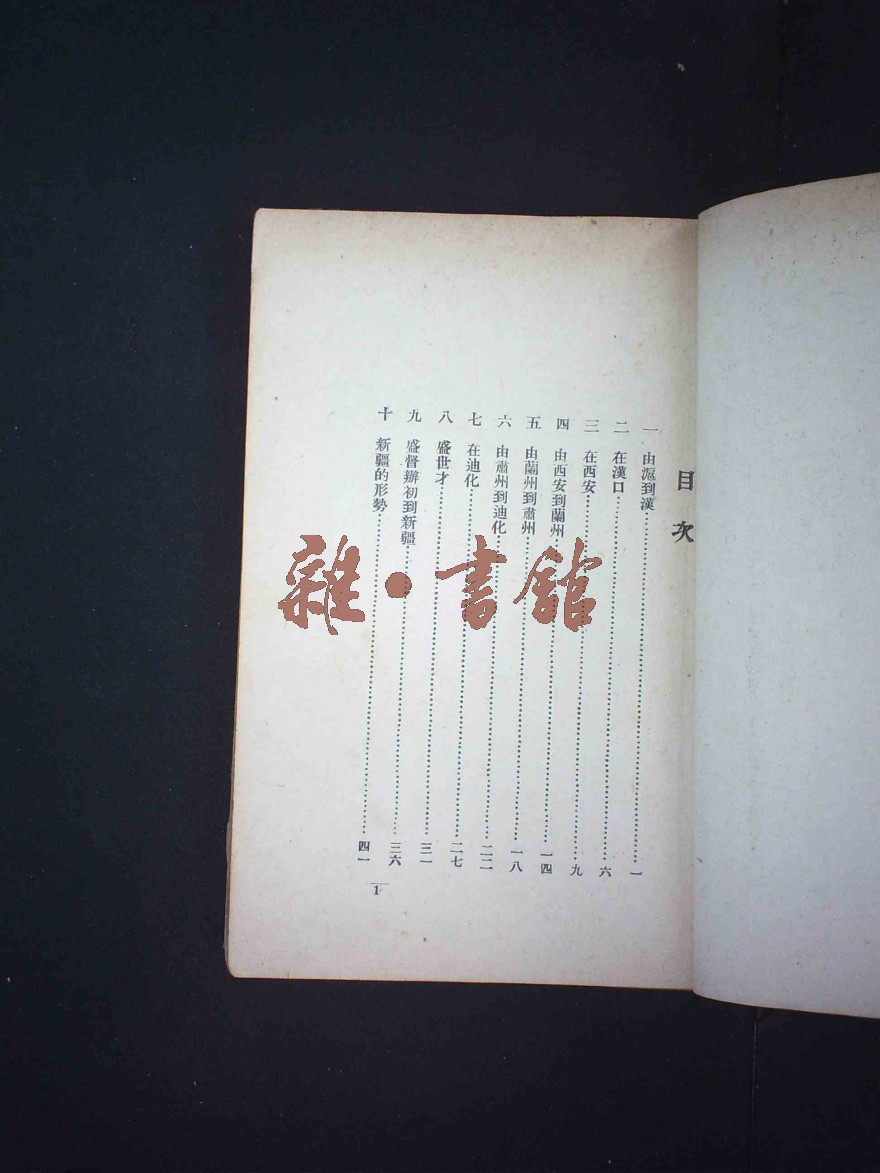 目次
一 由滬到漢……一
二 在漢口……六
三 在西安……九
四 由西安到蘭州……一四
五 由蘭州到肅州……一八
六 由肅州到迪化……二二
七 在迪化……二七
八 盛世才……三一
九 盛督辦初到新疆……三六
十 新疆的形勢……四一
1
雜·書館